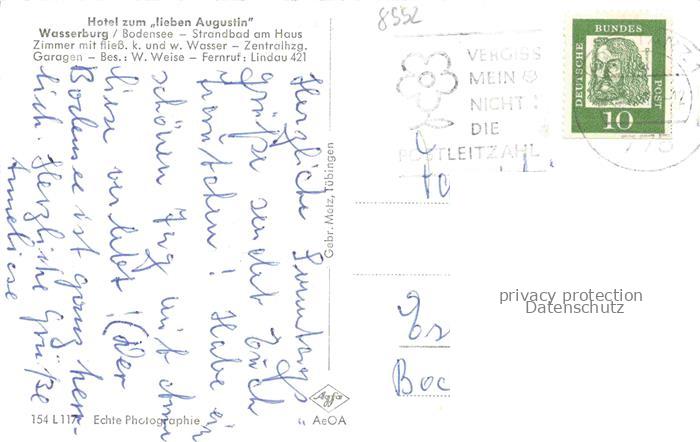 Hotel zum „lieben Augustin"
Wasserburg / Bodensee – Strandbad am Haus
Zimmer mit fließ. k. und w. Wasser – Zentralhzg.
Garagen – Bes.: W. Weise – Fernruf: Lindau 421
8552
VERGISS
MEIN
NICHT
DIE
POSTLEITZAHL
775
DEUTSCHE BUNDESPOST
10
Herzliche Sonntags-
grüße sendet Euch
! Habe ein
schönen Tag mit
verlebt! (Der
Bodensee ist ganz herr-
lich. Herzliche Grüße
Anneliese
Gebr. Metz, Tübingen
Boc
privacy protection
Datenschutz
154 L 117 Echte Photographie
Agfa
AeOA